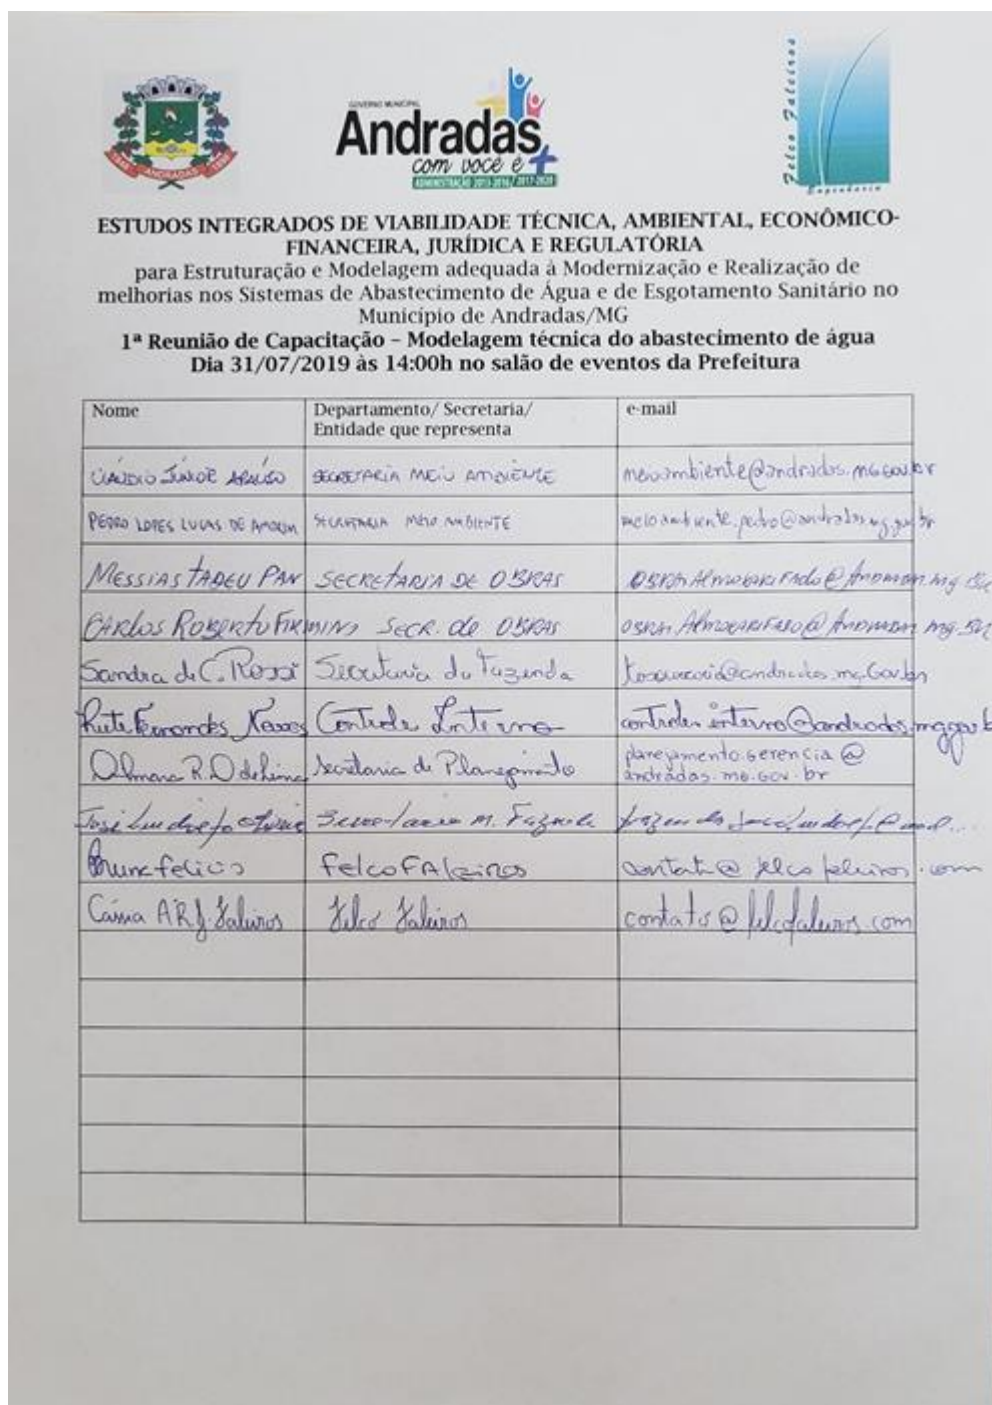 GOVERNO MUNICIPAL
Andradas
com você é +
ADMINISTRAÇÃO 2013-2016 / 2017-2020
ANDRADAS
Felco Faleiros
Engenharia
ESTUDOS INTEGRADOS DE VIABILIDADE TÉCNICA, AMBIENTAL, ECONÔMICO-
FINANCEIRA, JURÍDICA E REGULATÓRIA
para Estruturação e Modelagem adequada à Modernização e Realização de
melhorias nos Sistemas de Abastecimento de Água e de Esgotamento Sanitário no
Município de Andradas/MG
1ª Reunião de Capacitação – Modelagem técnica do abastecimento de água
Dia 31/07/2019 às 14:00h no salão de eventos da Prefeitura
Nome
Departamento/ Secretaria/
Entidade que representa
e-mail
CLÁUDIO JÚNIOR ARAÚJO SECRETARIA MEIO AMBIENTE meioambiente@andradas.mg.gov.br
PEDRO LOPES LUCAS DE AMORIM SECRETARIA MEIO AMBIENTE meioambiente.pedro@andradas.mg.gov.br
MESSIAS TADEU PAN SECRETARIA DE OBRAS
CARLOS ROBERTO FIRMINO SECR. de OBRAS
Sandra de C. Rossi Secretaria da Fazenda
Rute Fernandes Controle Interno
R. Secretaria de Planejamento planejamento.gerencia@
andradas.mg.gov.br
José M. Fazenda
Bruno felicio FelcoFAleiros contato@felcofaleiros.com
Cássia Faleiros Felco Faleiros contato@felcofaleiros.com